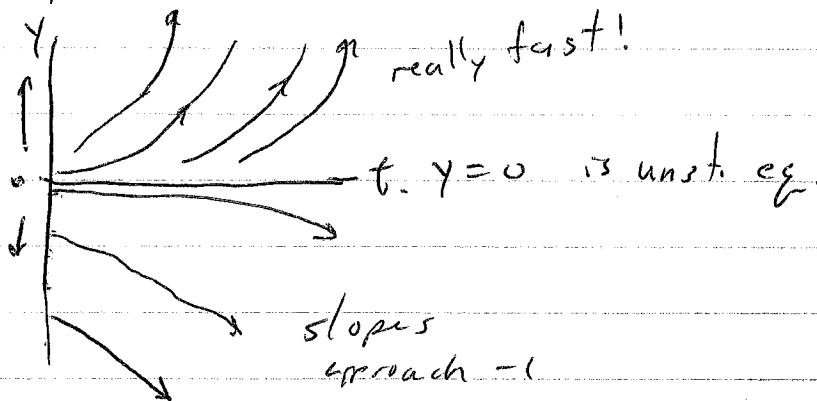 y
really fast!
0
t. y = 0 is unst. eq
slopes
approach -1